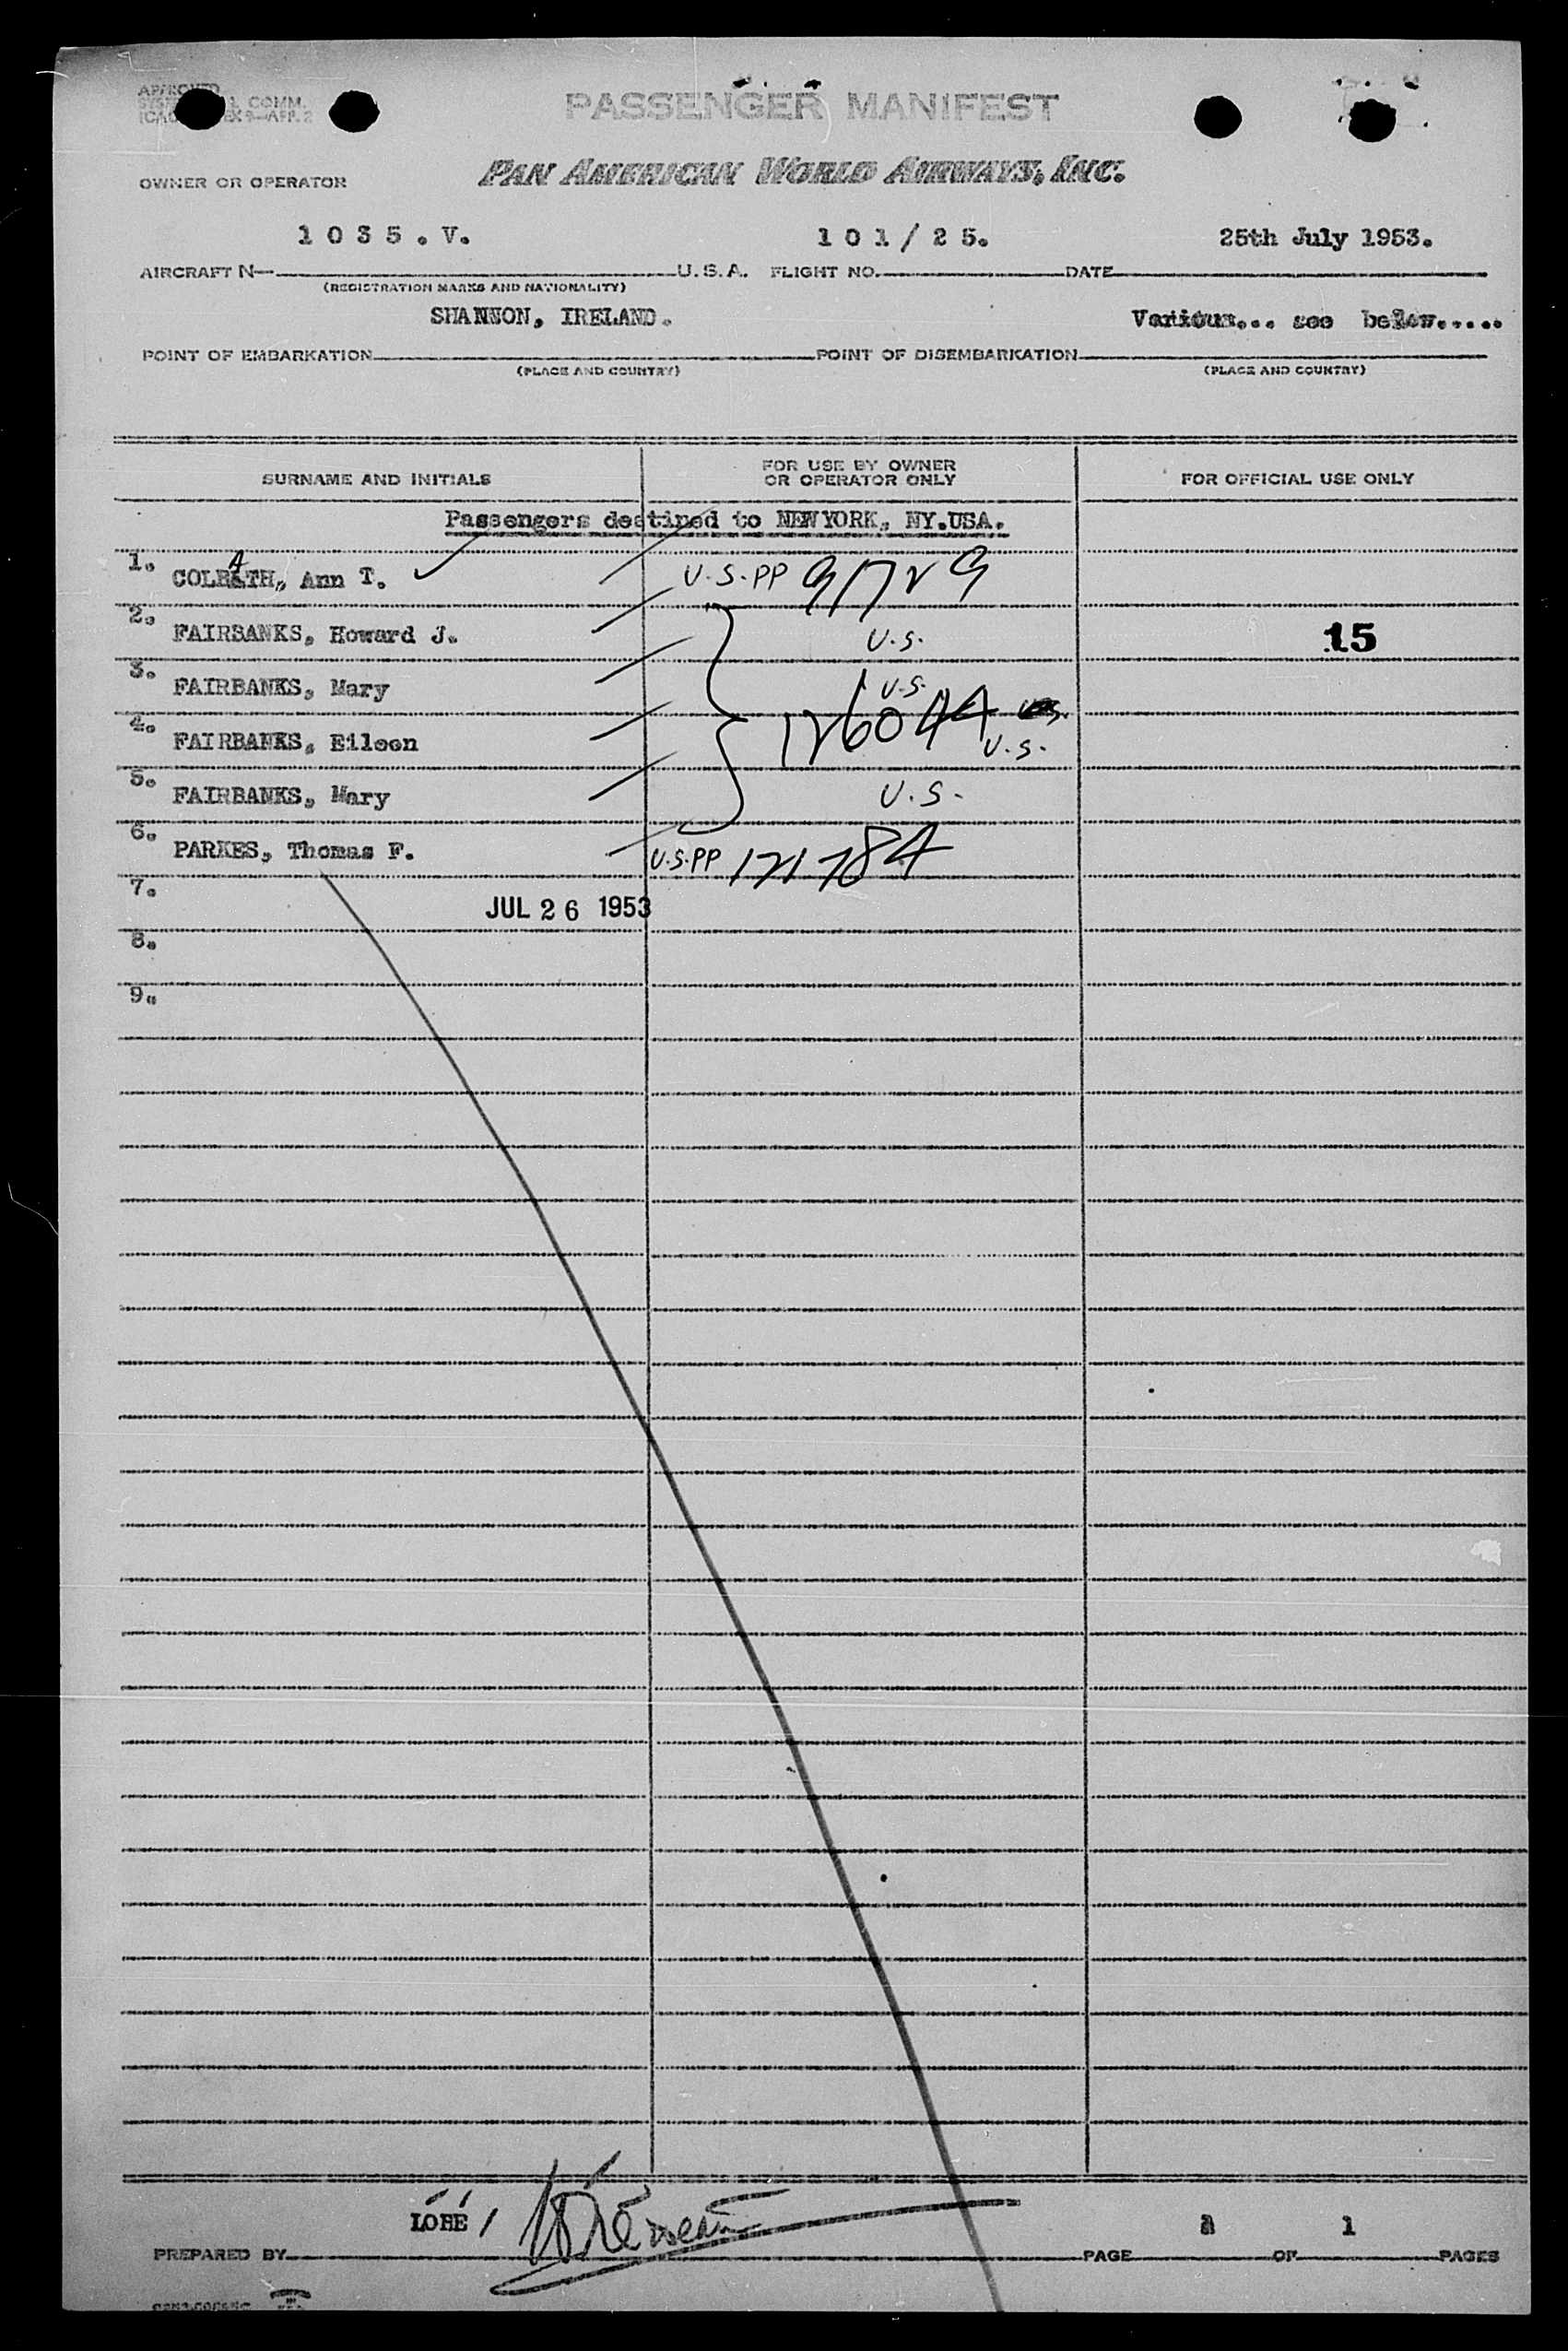 APPROVED
COMM.
PASSENGER MANIFEST
OWNER OR OPERATOR PAN AMERICAN WORLD AIRWAYS, INC.
1 0 3 5 . V. 1 0 1 / 2 5. 25th July 1953.
AIRCRAFT N— U. S. A. FLIGHT NO. DATE
(REGISTRATION MARKS AND NATIONALITY)
SHANNON, IRELAND. Various... see below.....
POINT OF EMBARKATION POINT OF DISEMBARKATION
(PLACE AND COUNTRY) (PLACE AND COUNTRY)
SURNAME AND INITIALS FOR USE BY OWNER OR OPERATOR ONLY FOR OFFICIAL USE ONLY
Passengers destined to NEW YORK, NY.USA.
1. COLBATH, Ann T. U.S.PP 91729
2. FAIRBANKS, Howard J. U.S. 15
3. FAIRBANKS, Mary U.S.
126044
4. FAIRBANKS, Eileen U.S.
5. FAIRBANKS, Mary U.S.
6. PARKES, Thomas F. U.S.PP 121784
7. JUL 26 1953
8.
9.
LOHE /
1
PREPARED BY PAGE OF PAGES